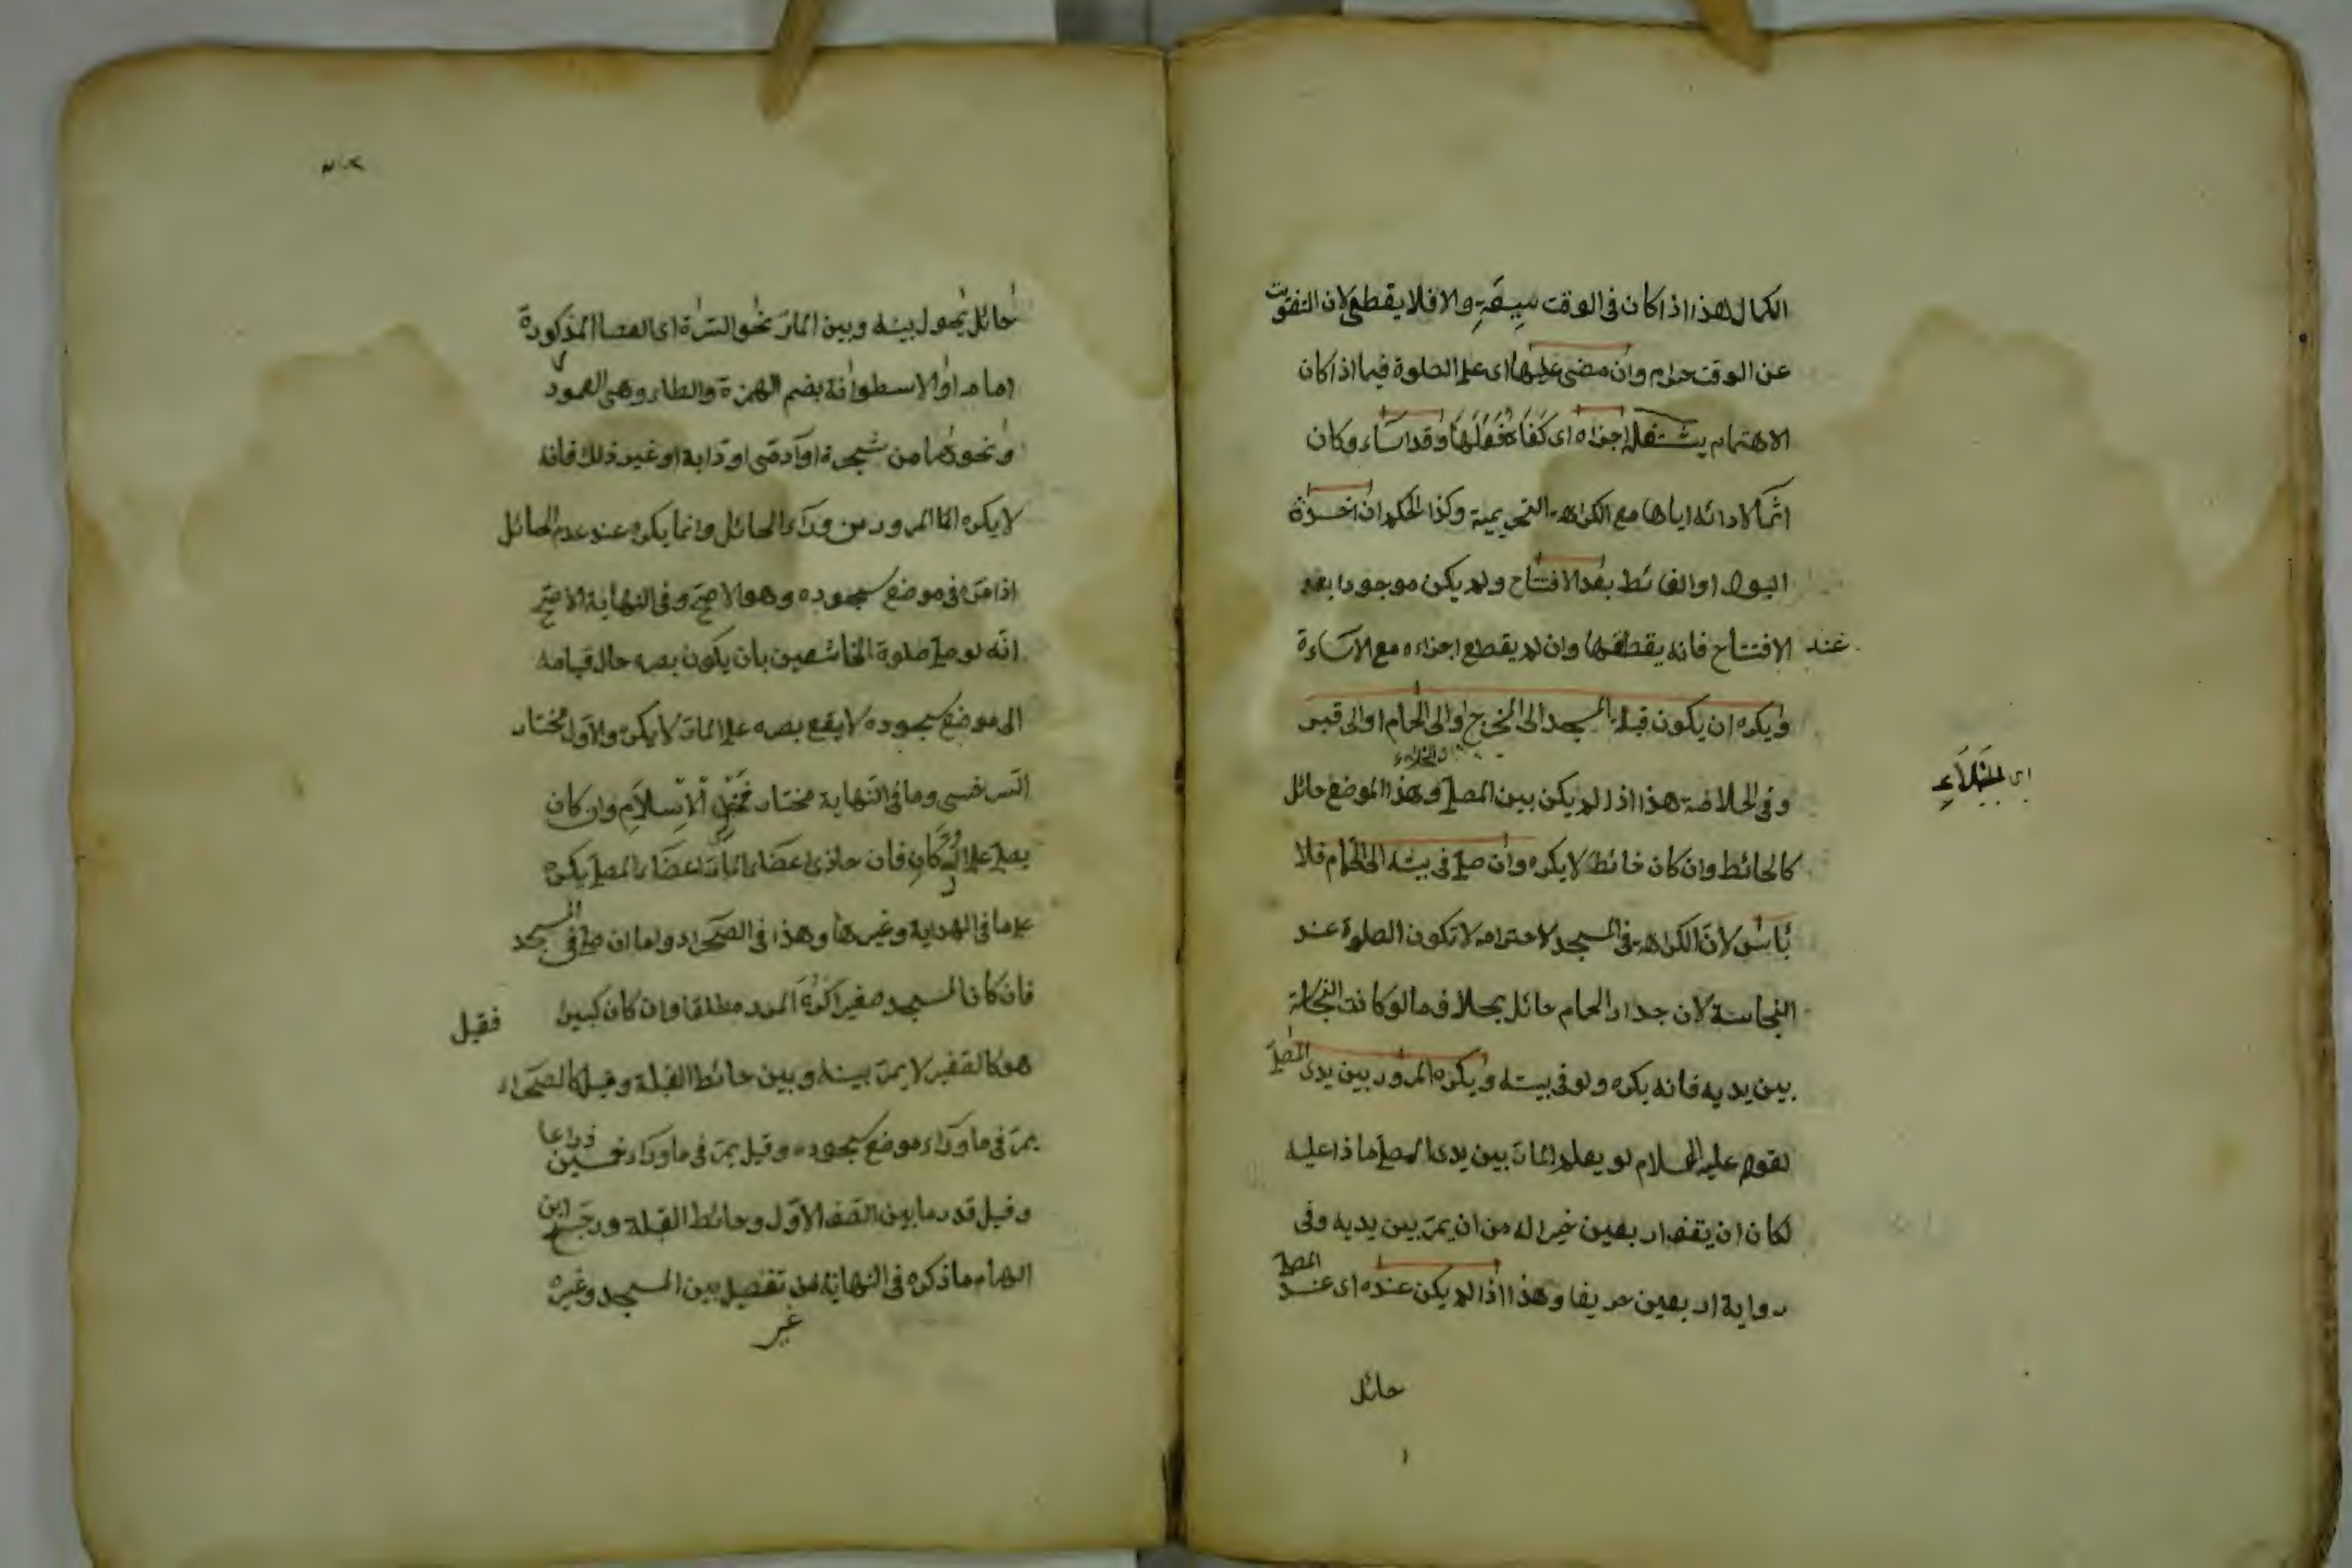 الكمال هذا اذا كان في الوقت سِعَةٍ والا فلا يقطع لان التفويت
عن الوقت حرام وان مضى عليها اى على الصلوة فيما اذا كان
الاهتمام يشغله اجزاه اى كَفَاهُ فِعْلُهَا وقد اَسَاء وكان
اثمًا لادائه اياها مع الكراهة التحريمية وكذا الحكم ان اخذه
البول او الغائط بعد الافتتاح ولم يكن موجودا بعد
عند الافتتاح فانه يقطعها وان لم يقطع اجزاءه مع الاساءة
ويكره ان يكون قبلة المسجد الى المخرج او الى الحمام او الى قبر
اى الخلاء
وفى الخلاصة هذا اذا لم يكن بين المصلى وهذا الموضع حائل
كالحائط وان كان حائط لا يكره وان صلى فى بيته الى الحمام فلا
بأس لانّ الكراهة فى المسجد لاحترامه لا تكون الصلوة عند
النجاسة لان جدار الحمام حائل بخلاف ما لو كانت النجاسة
بين يديه فانه يكره ولو فى بيته ويكره المرور بين يدى المصلى
لقوله عليه السلام لو يعلم المارّ بين يدى المصلى ماذا عليه
لكان ان يقف اربعين خيرا له من ان يمرّ بين يديه وفى
رواية اربعين خريفا وهذا اذا لم يكن عنده اى عند المصلى
حائل
حائل يحول بينه وبين المارّ نحو السترة اى العصا المذكورة
امامه او الاسطوانة بضم الهمزة والطاء وهى العمود
ونحوهما من شجرة او آدمّى او دابة او غير ذلك فانه
لا يكره المرور من وراء الحائل وانما يكره عند عدم الحائل
اذا مرّ فى موضع سجوده وهو الاصحّ وفى النهاية الاصحّ
انّه لو صلى صلوة الخاشعين بان يكون بصره حال قيامه
الى موضع سجوده لا يقع بصره على المارّ لا يكره والاول مختار
السّرخسى وما فى النّهاية مختار فخر الاسلام وان كان
يصلى على الدُّكَّانِ فان حاذى اعضاء المارّ اعضاء المصلى يكره
على ما فى الهداية وغيرها وهذا فى الصّحراء واما ان صلى فى المسجد
فان كان المسجد صغيرا كُرِهَ المرور مطلقا وان كان كبيرا فقيل
هو كالصغير لا يمرّ بينه وبين حائط القبلة وقيل كالصحراء
يمرّ فى ما وراء موضع سجوده وقيل يمرّ فى ما وراء خمسين ذراعا
وقيل قدر ما بين الصّف الاوّل وحائط القبلة ورجّح ابن
الهمام ما ذكره فى النهاية من تفصيل بين المسجد وغيره
غير